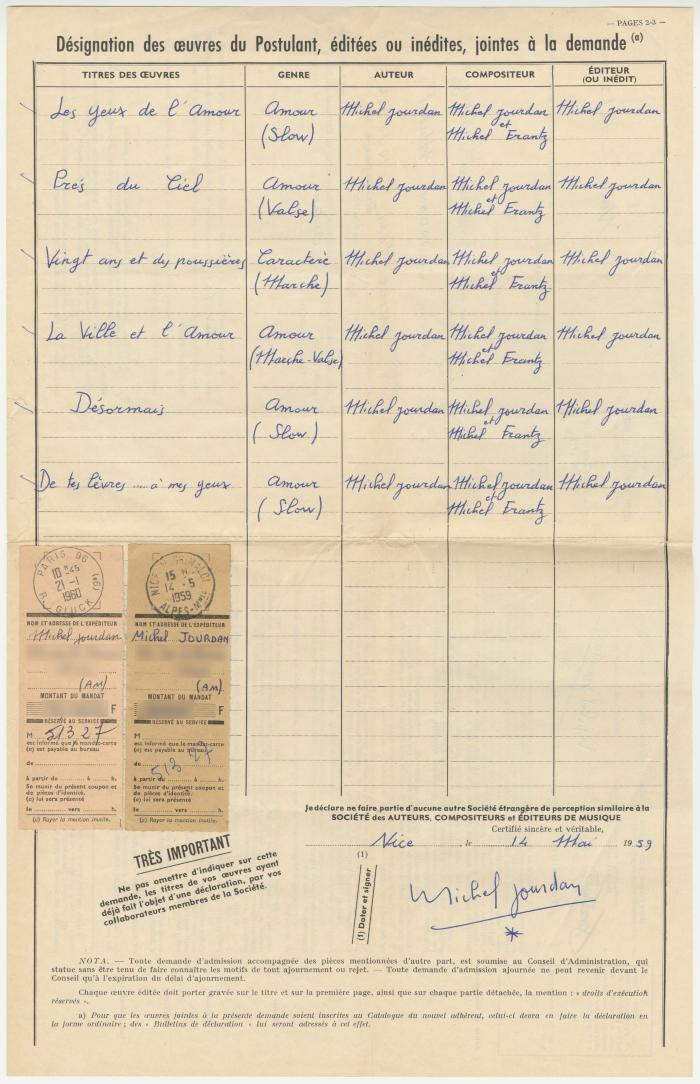 — PAGES 2-3 —
Désignation des œuvres du Postulant, éditées ou inédites, jointes à la demande (a)
TITRES DES ŒUVRES GENRE AUTEUR COMPOSITEUR ÉDITEUR (OU INÉDIT)
Les yeux de l'Amour Amour Michel Jourdan Michel Jourdan Michel Jourdan
(Slow) et Michel Frantz
Prés du Ciel Amour Michel Jourdan Michel Jourdan Michel Jourdan
(Valse) et Michel Frantz
Vingt ans et des poussières Caractère Michel Jourdan Michel Jourdan Michel Jourdan
(Marche) et Michel Frantz
La Ville et l'Amour Amour Michel Jourdan Michel Jourdan Michel Jourdan
(Marche-Valse) et Michel Frantz
Désormais Amour Michel Jourdan Michel Jourdan Michel Jourdan
(Slow) et Michel Frantz
De tes lèvres .... à mes yeux Amour Michel Jourdan Michel Jourdan Michel Jourdan
(Slow) et Michel Frantz
PARIS 96
10 H45
21-1
1960
R. GLUCK (9e)
NOM ET ADRESSE DE L'EXPÉDITEUR
Michel Jourdan
(AM)
MONTANT DU MANDAT
F
RÉSERVÉ AU SERVICE
M 51327
est informé que le mandat-carte
(c) est payable au bureau
de
à partir de h.
Se munir du présent coupon et
de pièces d'identité.
(c) lui sera présenté
le vers h.
(c) Rayer la mention inutile.
15 H
14-5
1959
ALPES-Mmes
NOM ET ADRESSE DE L'EXPÉDITEUR
Michel JOURDAN
(AM).
MONTANT DU MANDAT
F
RÉSERVÉ AU SERVICE
M
est informé que le mandat-carte
(c) est payable au bureau
de 51327
à partir du à h.
Se munir du présent coupon et
de pièces d'identité.
(c) lui sera présenté
le vers h.
(c) Rayer la mention inutile.
Je déclare ne faire partie d'aucune autre Société étrangère de perception similaire à la
SOCIÉTÉ des AUTEURS, COMPOSITEURS et ÉDITEURS DE MUSIQUE
Certifié sincère et véritable,
Nice , le 14 Mai 1959
(1)
(1) Dater et signer
Michel Jourdan
TRÈS IMPORTANT
Ne pas omettre d'indiquer sur cette
demande, les titres de vos œuvres ayant
déjà fait l'objet d'une déclaration, par vos
collaborateurs membres de la Société.
NOTA. — Toute demande d'admission accompagnée des pièces mentionnées d'autre part, est soumise au Conseil d'Administration, qui
statue sans être tenu de faire connaître les motifs de tout ajournement ou rejet. — Toute demande d'admission ajournée ne peut revenir devant le
Conseil qu'à l'expiration du délai d'ajournement.
Chaque œuvre éditée doit porter gravée sur le titre et sur la première page, ainsi que sur chaque partie détachée, la mention : « droits d'exécution
réservés ».
a) Pour que les œuvres jointes à la présente demande soient inscrites au Catalogue du nouvel adhérent, celui-ci devra en faire la déclaration en
la forme ordinaire ; des « Bulletins de déclaration » lui seront adressés à cet effet.